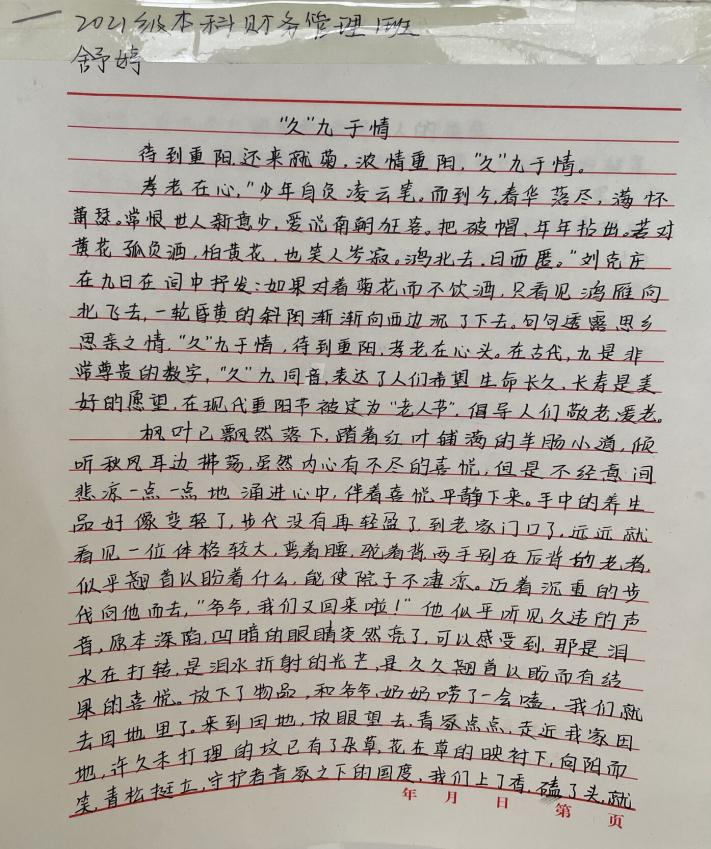 2021级本科财务管理1班
舒婷
“久”九于情
待到重阳,还来就菊,浓情重阳,“久”九于情。
孝老在心,“少年自负凌云笔。而到今,春华落尽,满怀
萧瑟。常恨世人新意少,爱说南朝狂客。把破帽,年年拈出。若对
黄花孤负酒,怕黄花,也笑人岑寂。鸿北去,日西匿。”刘克庄
在九日在词中抒发:如果对着菊花而不饮酒,只看见鸿雁向
北飞去,一轮昏黄的斜阳渐渐向西边沉了下去。句句透露思乡
思亲之情,“久”九于情,待到重阳,孝老在心头。在古代,九是非
常尊贵的数字,“久”九同音,表达了人们希望生命长久,长寿是美
好的愿望,在现代重阳节被定为“老人节”,倡导人们敬老,爱老。
枫叶已飘然落下,踏着红叶铺满的羊肠小道,倾
听秋风耳边拂荡,虽然内心有不尽的喜悦,但是不经意间
悲凉一点一点地涌进心中,伴着喜悦平静下来。手中的养生
品好像变轻了,步伐没有再轻盈了,到老家门口了,远远就
看见一位体格较大,弯着腰,驼着背,两手别在后背的老者,
似乎翘首以盼着什么,能使院子不凄凉。迈着沉重的步
伐向他而去,“爷爷,我们又回来啦!”他似乎听见久违的声
音,原本深陷,凹暗的眼睛突然亮了,可以感受到,那是泪
水在打转,是泪水折射的光芒,是久久翘首以盼而有结
果的喜悦。放下了物品,和爷爷,奶奶唠了一会嗑,我们就
去田地里了。来到田地,放眼望去,青冢点点,走近我家田
地,许久未打理的坟已有了杂草,花在草的映衬下,向阳而
笑,青松挺立,守护者青冢之下的国度,我们上了香,磕了头,就
年 月 日 第 页